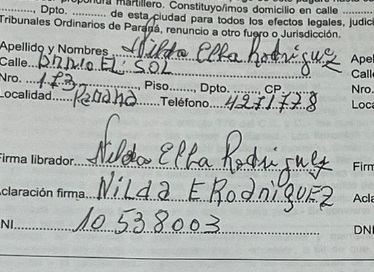 propondrá martillero. Constituyo/imos domicilio en calle
Dpto. de esta ciudad para todos los efectos legales, judici
Tribunales Ordinarios de Paraná, renuncio a otro fuero o Jurisdicción.
Apellido y Nombres Nilda Elba Rodriguez Apel
Calle BARRIO EL SOL Calle
Nro. 173 Piso Dpto. CP Nro.
Localidad Parana Teléfono 4271778 Loca
Firma librador Nilda Elba Rodriguez Firm
Aclaración firma NILDA E RODRIGUEZ Acla
DNI 10538003 DNI